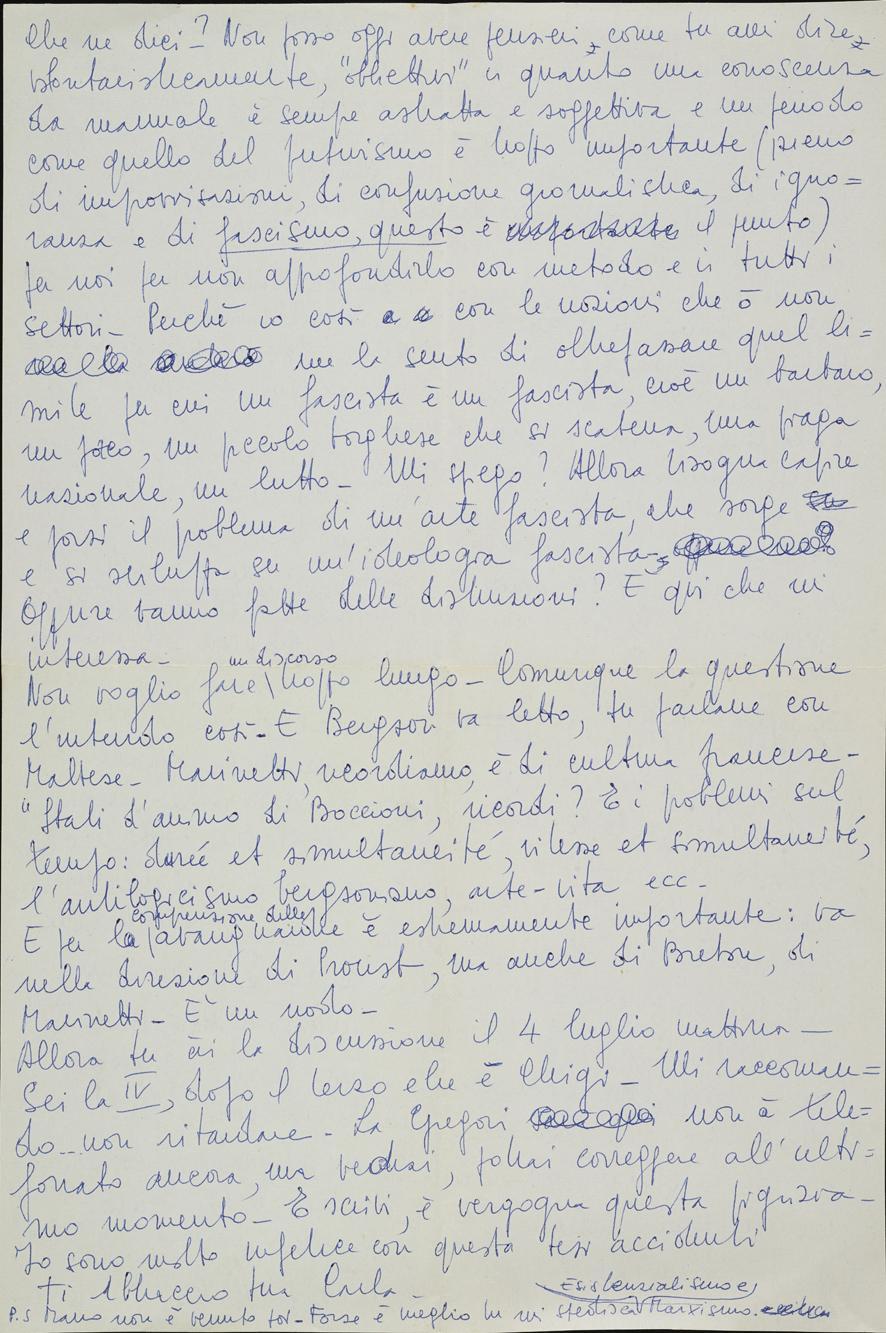 Che ne dici? Non posso oggi avere pensieri, come tu avi dire,
"obbiettivi" in quanto una conoscenza
da manuale è sempre astratta e soggettiva e un periodo
come quello del futurismo è troppo importante (pieno
di improvvisazioni, di confusione giornalistica, di igno=
ranza e di fascismo, questo è il punto)
per noi per non approfondirlo con metodo e in tutti i
settori_ Perché io così con le nozioni che ò non
me la sento di oltrepassare quel li=
mite per cui un fascista è un fascista, cioè un barbaro,
un , un piccolo borghese che si scatena, una piaga
nazionale, un lutto_ Mi spiego? Allora bisogna capire
e porsi il problema di un'arte fascista, che sorge
e si sviluppa su un'ideologia fascista_
Oppure vanno fatte delle distinzioni? E qui che mi
interessa_
Non voglio fare un discorso troppo lungo_ Comunque la questione
l'intendo così_ E Bergson va letto, tu parlane con
Maltese_ Marinetti, ricordiamo, è di cultura francese_
"Stati d'animo di Boccioni, ricordi? E i problemi sul
tempo: durée et simultaneité, vitesse et simultaneité,
l'antilogicismo bergsoniano, arte-vita ecc_
E per la comprensione delle è estremamente importante: va
nella direzione di Proust, ma anche di Breton, di
Marinetti_ E' un nodo_
Allora tu ài la discussione il 4 luglio mattina_
Sei la IV, dopo il terzo che è Chigi_ Mi raccoman=
do_ non ritardare_ La Gregori non à tele=
fonato ancora, ma vedrai, potrai correggere all'ulti=
mo momento_ E scrivi, è vergogna questa pigrizia_
Io sono molto infelice con questa tesi accidenti
Ti abbraccio tua Carla_
P.S Mano non è venuto poi_ Forse è meglio tu mi spedisca Esistenzialismo e Marxismo.